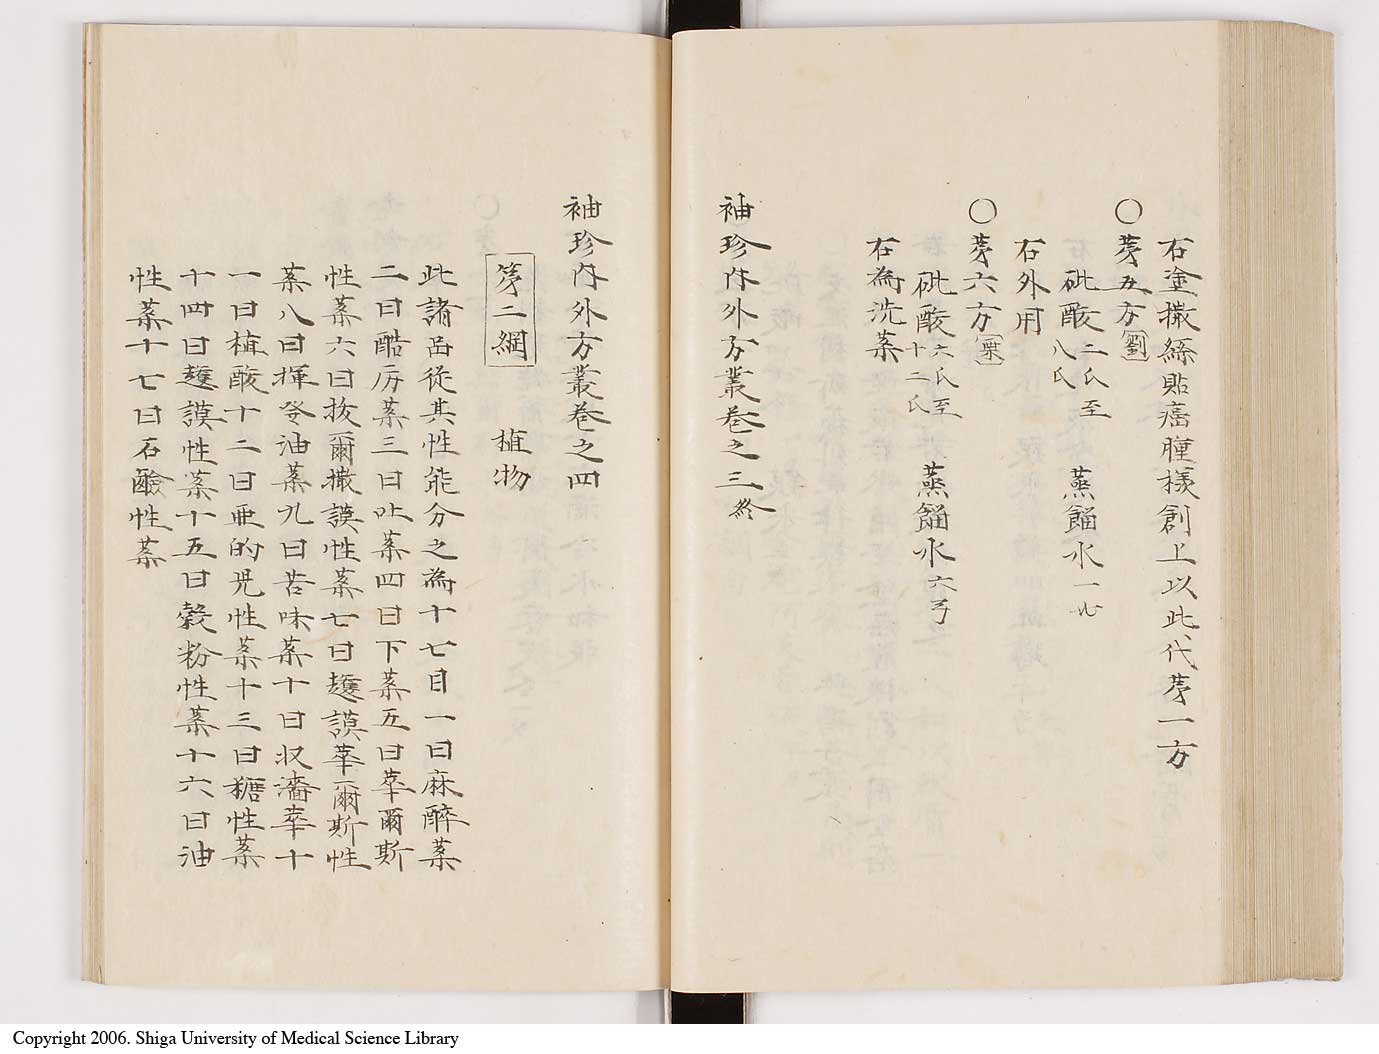 右塗撒絲貼癌腫様創上以此代㐧一方
〇㐧五方 劉
砒酸 二氏至八氏 蒸餾水 一
右外用
〇㐧六方 栗
砒酸 六氏至十二氏 蒸餾水 六弓
右為洗薬
袖珍内外方叢巻之三 終
袖珍内外方叢巻之四
㐧二綱 植物
此諸品従其性能分之為十七目一曰麻酔薬
二曰酷厉薬三曰吐薬四曰下薬五曰華爾斯
性薬六曰抜爾撒謨性薬七曰護謨華爾斯性
薬八曰揮発油薬九曰苦味薬十曰収濇華十
一曰植酸十二曰亜的児性薬十三曰糖性薬
十四曰護謨性薬十五曰穀粉性薬十六曰油
性薬十七曰石鹸性薬
Copyright 2006. Shiga University of Medical Science Library